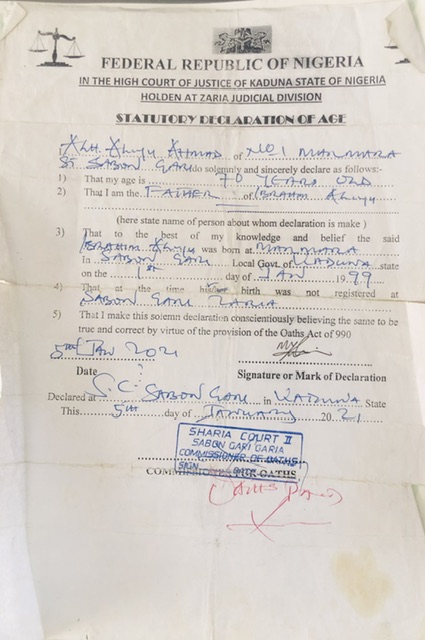 FEDERAL REPUBLIC OF NIGERIA
IN THE HIGH COURT OF JUSTICE OF KADUNA STATE OF NIGERIA
HOLDEN AT ZARIA JUDICIAL DIVISION
STATUTORY DECLARATION OF AGE
I ALH. ALIYU AHMAD of NO 1 MAN MARA
ST SABON GARI do solemnly and sincerely declare as follows:-
1) That my age is 70 YEARS OLD
2) That I am the FATHER of IBRAHIM ALIYU
(here state name of person about whom declaration is make)
3) That to the best of my knowledge and belief the said
IBRAHIM ALIYU was born at MAN MARA
in SABON GARI Local Govt. of KADUNA state
on the 1st day of JAN 1999
4) That at the time his/her birth was not registered at
SABON GARI ZARIA
5) That I make this solemn declaration conscientiously believing the same to be
true and correct by virtue of the provision of the Oaths Act of 990
5th JAN 2021
Date
Signature or Mark of Declaration
Declared at S.C. SABON GARI in KADUNA State
This 5th day of JANUARY 2021
SHARIA COURT II
SABON GARI GARIA
COMMISSIONER OF OATHS
SIGN DATE
COMMISSIONER FOR OATHS
OATHS PAID